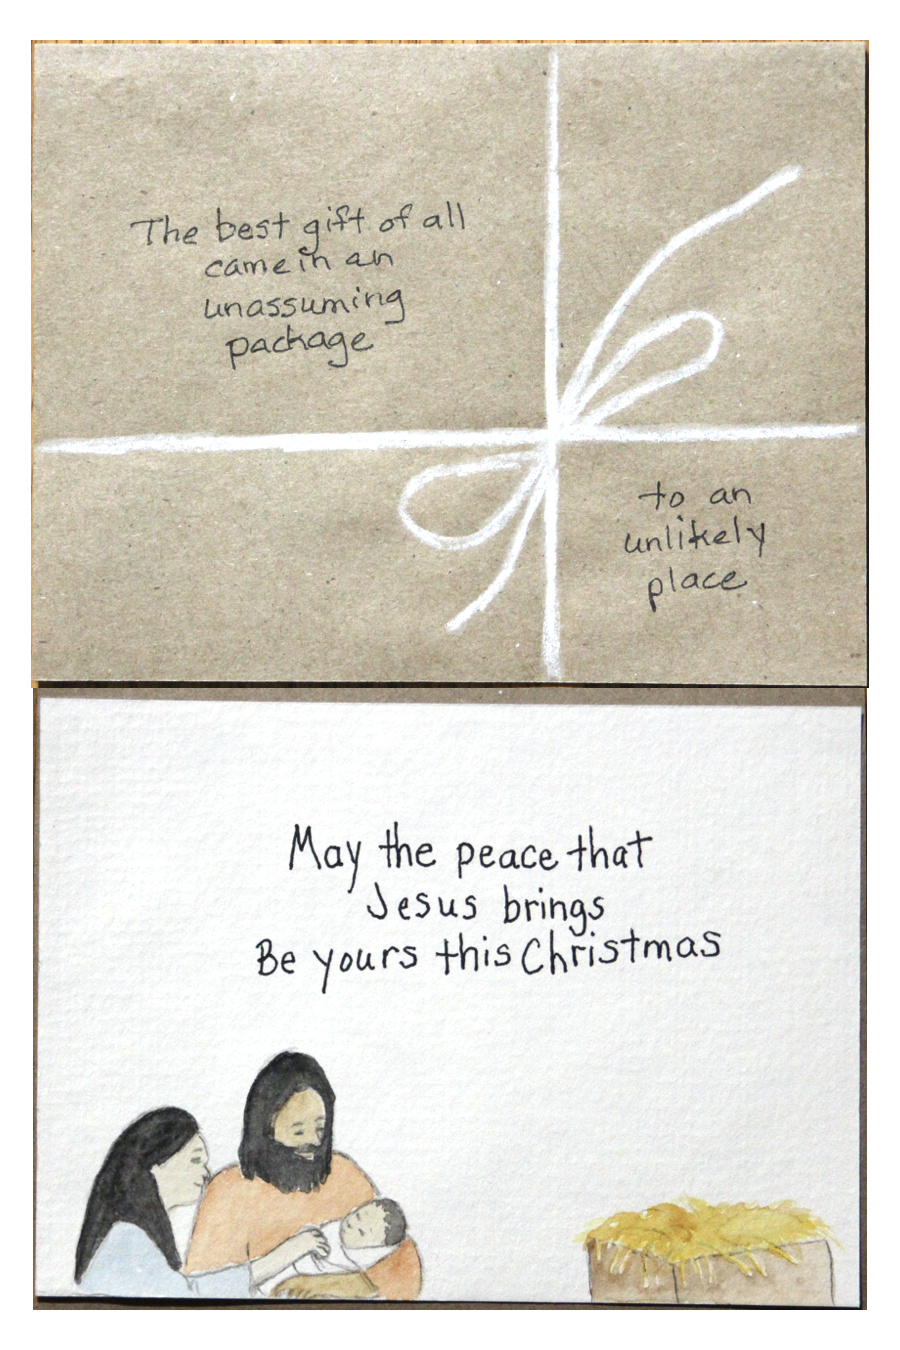 The best gift of all
came in an
unassuming
package
to an
unlikely
place
May the peace that
Jesus brings
Be yours this Christmas